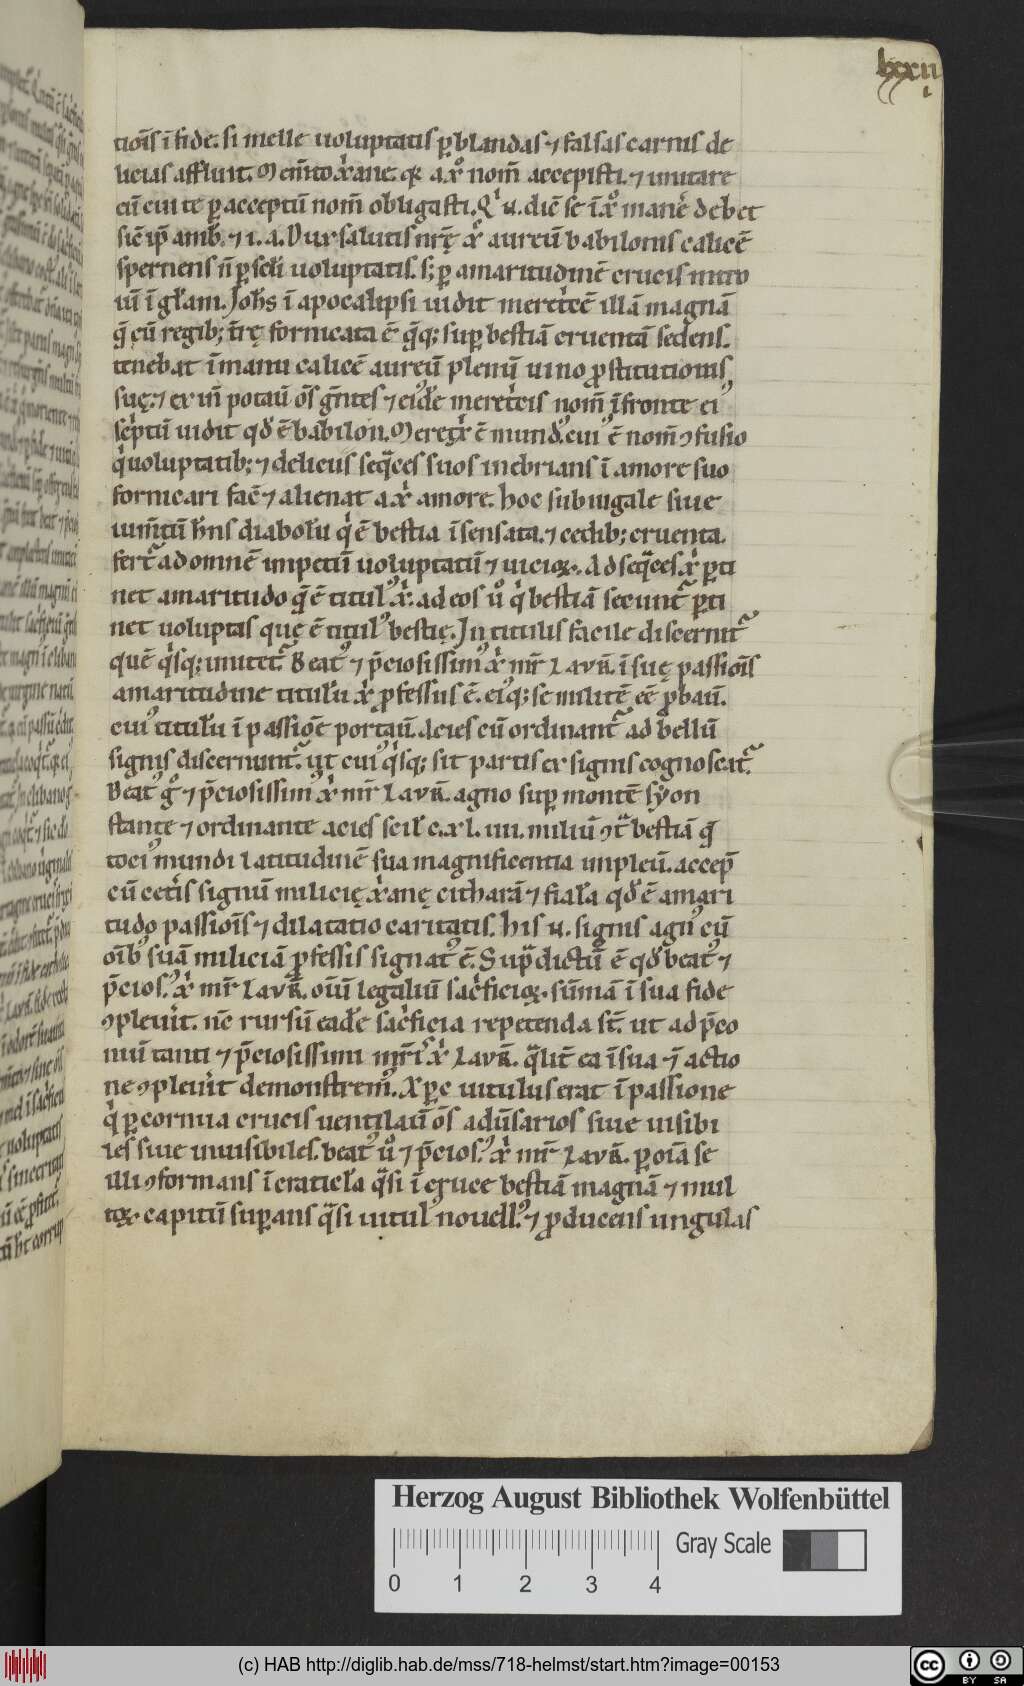 lxxii
tioīs ī fide. si melle uoluptatis p̱blandas ⁊ falsas carnis de
licias affluit. Mem̄to xp̄iane. qꝫ a xp̄o nom̄ accepisti. ⁊ imitare
eū cui te p̱ acceptū nom̄ obligasti. Qⁱ u. diē se ī xp̄o manē debet
sic̄ ip̄e amb̄. ⁊ i. a. Dux salutis nr̄ę xp̄c aureū babilonis calicē
sperneris n̄ p̱ scłi uoluptatis. s; p̱ amaritudinē crucis intro
iū ī gl̄am. Joh̄s ī apocalipsi uidit meret̓cē illā magnā
q̄ cū regib; tr̄ę fornicata ē q̄q; sup̱ bestiā cruentā sedens.
tenebat ī manu calicē aureū plenū uino ꝓstitutionis
suę. ⁊ ex in̄ potaū oēs gn̄tes ⁊ eiꝰdē meret̓cis nom̄ ī fronte eiꝰ
sc̓ptū uidit qd̄ ē babilon. Meret̓x ē mundꝰ. cuiꝰ ē nom̄ ꝯfusio
q̓ uoluptatib; ⁊ deliciis seq̄ces suos inebrians ī amore suo
fornicari fac̄ ⁊ alienat a xp̓i amore. hoc subiugale siue
ium̄tū hn̄s diabolū q̓ ē bestia ī sensata. ⁊ cedib; cruenta.
fert̄ ad omnē impetū uoluptatū ⁊ uicioꝝ. Ad seq̄ces xp̓i p̱ti
net amaritudo q̄ ē titulꝰ xp̓i. ad eos ū q̓ bestiā secunt̄ p̱ti
net uoluptas quę ē titulꝰ bestię. In titulis facile discernit̄
quē q̓sq; imitet̄. Beatꝰ ⁊ p̄ciosissimꝰ xp̓i mr̄ Lavn̄. ī suę passiōis
amaritudine titulū xp̓i ꝓfessus ē. eiꝰq; se militē eē ꝓbaū.
cuiꝰ titulū ī passiōe portaū. Acies cū ordinant̄ ad bellū
signis discernunt̄. ut cuiꝰ q̓sq; sit partis ex signis cognoscat̄.
Beatꝰ g̊ ⁊ p̄ciosissimꝰ xp̓i mr̄ Lavn̄. agno sup̱ montē syon
stante ⁊ ordinante acies scił c. xl. iiii. miliū ꝯt̄ bestiā q̄
tociꝰ mundi latitudinē sua magnificentia impleū. accep̄
cū cet̓is signū milicię xp̓ianę citharā ⁊ fiala qd̄ ē amari
tudo passiōis ⁊ dilatatio caritatis. his u. signis agnꝰ cū
oīb; suā miliciā ꝓfessis signatꝰ ē. Supᵃdictū ē qd̄ beatꝰ ⁊
p̄ciosꝰ xp̓i mr̄ Lavn̄. oīū legaliū sac̓ficioꝝ. sūmā ī sua fide
ꝯpleuit. nc̄ rursū eadē sac̓ficia repetenda st̄. ut ad p̄co
niū tanti ⁊ p̄ciosissimi mr̄is xp̓i Lavn̄. qᵃlit̄ ea ī sua ⁊ ī actio
ne ꝯpleuit demonstremꝰ. Xp̄c uitulus erat ī passione
q̓ p̱ cornua crucis uentilaū oēs adūsarios siue uisibi
les siue inuisibiles. beatꝰ ū ⁊ p̄ciosꝰ xp̓i mr̄ Lavn̄. p̱ oīa se
illi ꝯformans ī craticła qᵃsi ī cruce bestiā magnā ⁊ mul
toꝝ. capitū sup̱ans qᵃsi uitulꝰ nouellꝰ. ⁊ ꝓducens ungulas
Herzog August Bibliothek Wolfenbüttel
Gray Scale
0 1 2 3 4
(c) HAB http://diglib.hab.de/mss/718-helmst/start.htm?image=00153
cc BY SA